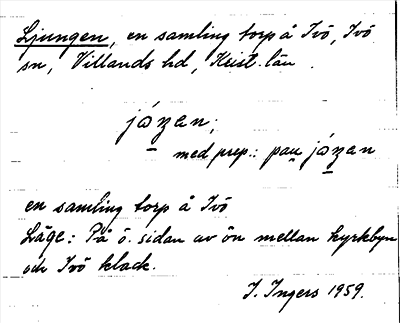 Ljungen, en samling torp å Ivö, Ivö
sn, Villands hd, Krist. län
jázan;
med prep.: pau jázan
en samling torp å Ivö
Läge: På ö. sidan av ön mellan kyrkbyn
och Ivö klack.
I. Ingers 1959.